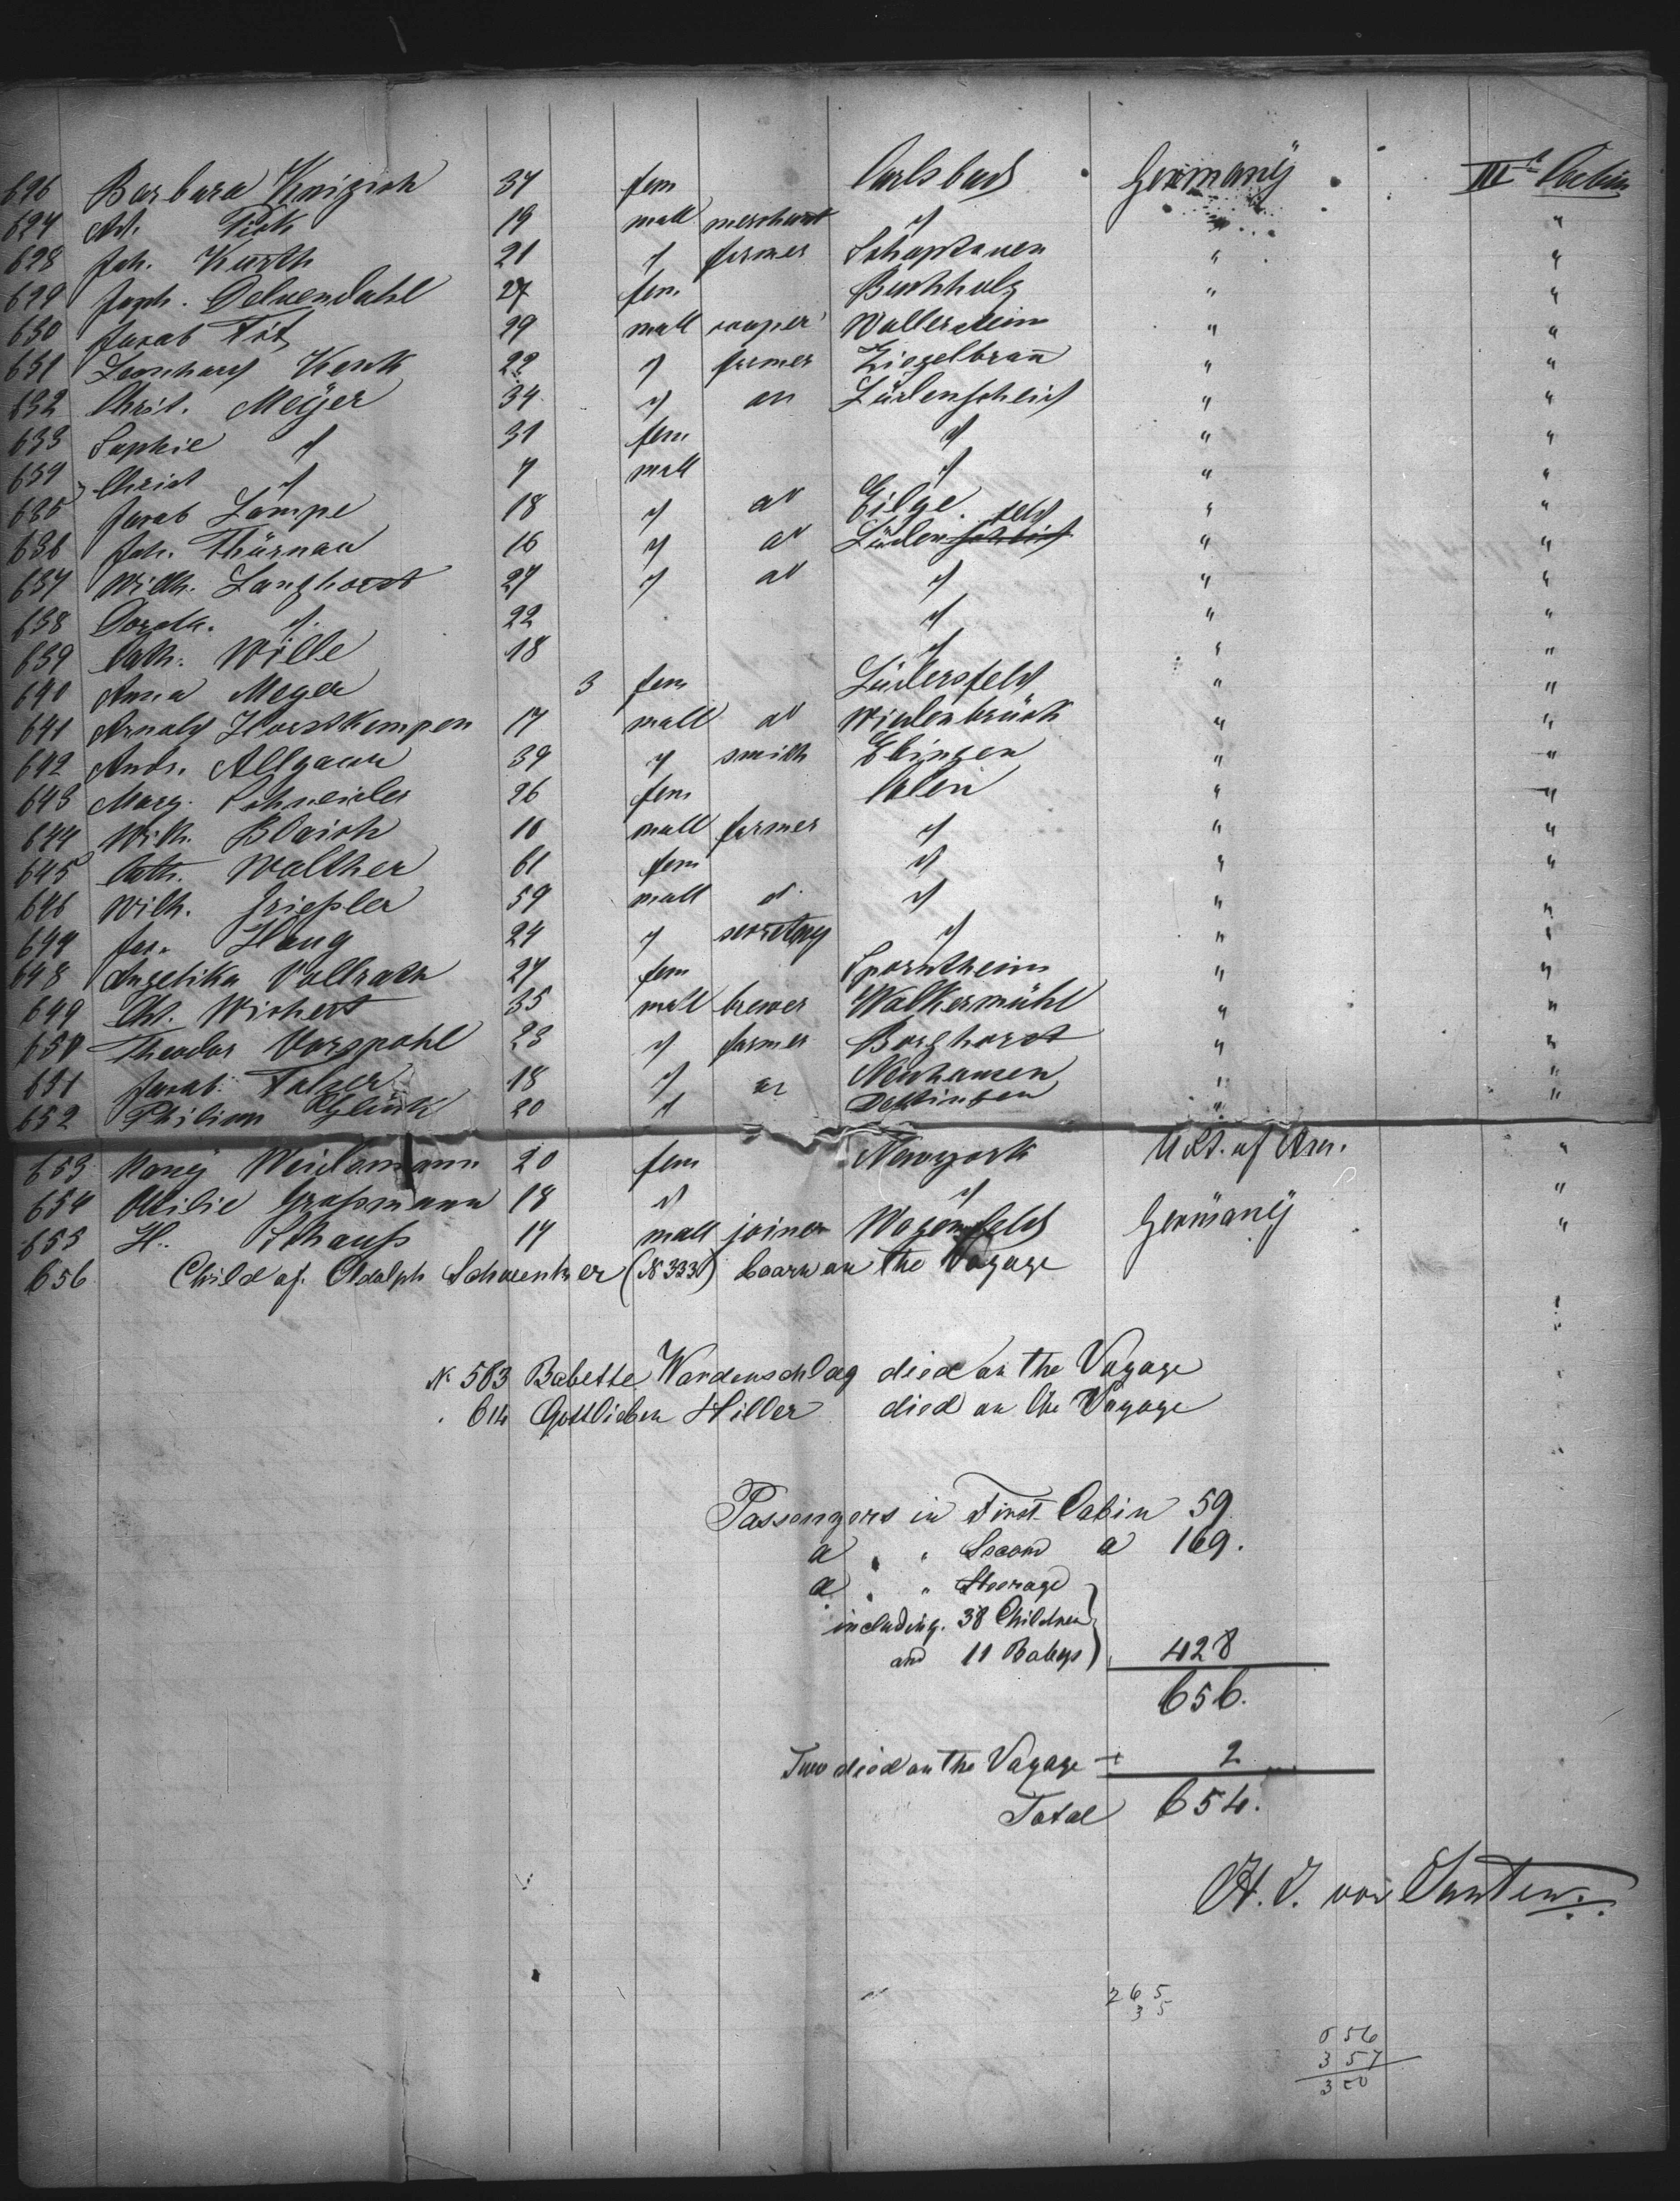 626 Barbara Knizish 34 fem Carlsbad Germany IIId Cabin
627 Ad. Pick 19 mall merchant " " "
628 Joh. Kurth 21 " farmer " "
629 Joseph. Delvendahl 27 fem. Buchholz " "
630 Jacob Föt 29 mall cooper Wallerstein " "
631 Leonhard Kenk 22 " farmer Ziegelbronn " "
632 Christ. Meÿer 34 " do Lüdenscheid " "
633 Sophie " 31 fem " " "
634 Christ " 7 mall " " "
635 Jacob Lampe 18 " do Eilge. " "
636 Joh. Thürnau 16 " do Lüdenscheid feld " "
637 Wilh. Langhorst 27 " do " " "
638 Doroth. " 22 " " "
639 Cath. Wille 18 " " "
640 Anna Meyer 3 fem Lüdersfeld " "
641 Arnold Horstkempen 17 mall do Wiedenbrück " "
642 Andr. Allgauer 39 " smith Ebingen " "
643 Marg. Schneider 26 fem Calw " "
644 Wilh. Blaich 16 mall farmer " " "
645 Cath. Walther 61 fem " " "
646 Wilh. Griessler 59 mall d. " " "
647 Jac. Haug 24 " secretary " " "
648 Angelika Vollrath 27 fem " "
649 Chr. Wichert 35 mall brewer Walkermühl " "
650 Theodor Vorspohl 23 " farmer Borghorst " "
651 Jacob Falzer 18 " do Neuhausen " "
652 Philipp Glück 20 " Dettingen " "
653 Nanÿ Weidemann 20 fem Newyork U. St. of Am. "
654 Ottilie Grassmann 18 " " Germanÿ "
655 H. Schauss 17 mall joiner Wagenfeld "
656 Child of Adolph Schwenker (№ 333) boarn on the Voyage
№ 583 Babette Wardenschlag died on the Voyage
" 614 Gottlieben Hiller died on the Voyage
Passengers in First Cabin 59.
d " " Second d 169.
d " " Steerage
including. 38 Children
and 11 Babys) 428
656.
Two died on the Voyage ÷ 2
Total 654.
H. J. von Santen.
265
35
656
357